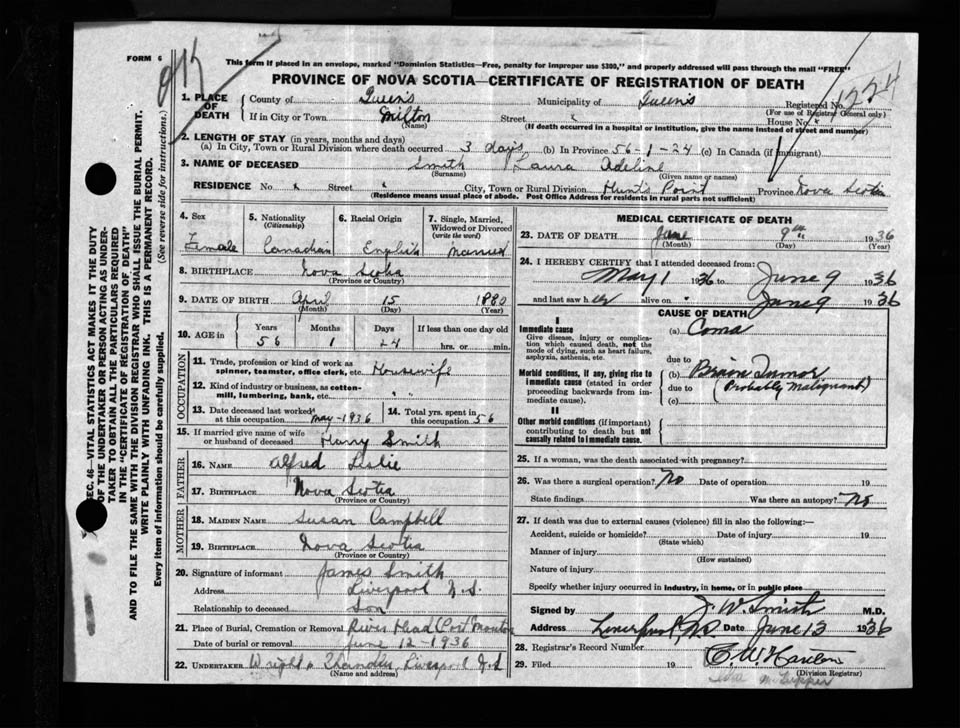 FORM 6
This form if placed in an envelope, marked "Dominion Statistics—Free, penalty for improper use $300," and properly addressed will pass through the mail "FREE"
PROVINCE OF NOVA SCOTIA—CERTIFICATE OF REGISTRATION OF DEATH
1224
1. PLACE OF DEATH
County of Queens Municipality of Queens Registered No.
(For use of Registrar General only)
If in City or Town Milton Street House No.
(Name) (If death occurred in a hospital or institution, give the name instead of street and number)
2. LENGTH OF STAY (in years, months and days)
(a) In City, Town or Rural Division where death occurred 3 days (b) In Province 56-1-24 (c) In Canada (if immigrant)
3. NAME OF DECEASED Smith Laura Adeline
(Surname) (Given name or names)
RESIDENCE No. Street City, Town or Rural Division Hunts Point Province Nova Scotia
(Residence means usual place of abode. Post Office Address for residents in rural parts not sufficient)
4. Sex Female
5. Nationality (Citizenship) Canadian
6. Racial Origin English
7. Single, Married, Widowed or Divorced (write the word) Married
8. BIRTHPLACE Nova Scotia
(Province or Country)
9. DATE OF BIRTH April 15 1880
(Month) (Day) (Year)
10. AGE in Years Months Days If less than one day old
56 1 24 hrs. or min.
OCCUPATION
11. Trade, profession or kind of work as spinner, teamster, office clerk, etc. Housewife
12. Kind of industry or business, as cotten-mill, lumbering, bank, etc. " "
13. Date deceased last worked at this occupation May-1936
14. Total yrs. spent in this occupation 56
15. If married give name of wife or husband of deceased Harry Smith
FATHER
16. NAME Alfred Leslie
17. BIRTHPLACE Nova Scotia
(Province or Country)
MOTHER
18. MAIDEN NAME Susan Campbell
19. BIRTHPLACE Nova Scotia
(Province or Country)
20. Signature of informant James Smith
Address Liverpool N.S.
Relationship to deceased Son
21. Place of Burial, Cremation or Removal River Head (Port Mouton
Date of burial or removal June 12-1936
22. UNDERTAKER Wright & Chandler, Liverpool N.S
(Name and address)
MEDICAL CERTIFICATE OF DEATH
23. DATE OF DEATH June 9th 1936
(Month) (Day) (Year)
24. I HEREBY CERTIFY that I attended deceased from:
May 1 1936 to June 9 1936
and last saw her alive on June 9 1936
CAUSE OF DEATH
I
Immediate cause
Give disease, injury or complication which caused death, not the mode of dying, such as heart failure, asphyxia, asthenia, etc.
(a) Coma
due to
Morbid conditions, if any, giving rise to immediate cause (stated in order proceeding backwards from immediate cause).
(b) Brain Tumor
due to (Probably Malignant)
(c)
II
Other morbid conditions (if important) contributing to death but not causally related to immediate cause.
25. If a woman, was the death associated with pregnancy?
26. Was there a surgical operation? No Date of operation 19
State findings Was there an autopsy? No
27. If death was due to external causes (violence) fill in also the following:—
Accident, suicide or homicide? Date of injury 19
(State which)
Manner of injury
(How sustained)
Nature of injury
Specify whether injury occurred in industry, in home, or in public place
Signed by J. W. Smith M.D.
Address Liverpool NS Date June 13 1936
28. Registrar's Record Number
29. Filed 19
(Division Registrar)
SEC. 46—VITAL STATISTICS ACT MAKES IT THE DUTY
OF THE UNDERTAKER OR PERSON ACTING AS UNDER-
TAKER TO OBTAIN ALL THE PARTICULARS REQUIRED
IN THE "CERTIFICATE OF REGISTRATION OF DEATH"
AND TO FILE THE SAME WITH THE DIVISION REGISTRAR WHO SHALL ISSUE THE BURIAL PERMIT.
WRITE PLAINLY WITH UNFADING INK. THIS IS A PERMANENT RECORD.
Every item of information should be carefully supplied. (See reverse side for instructions.)